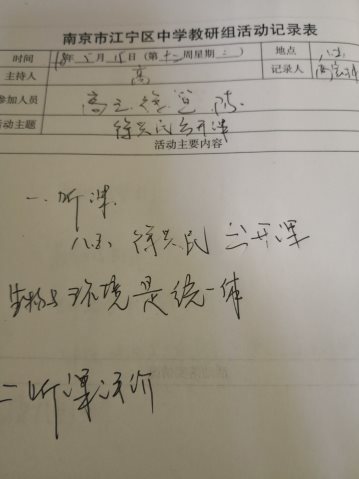 南京市江宁区中学教研组活动记录表
时间 18年5月15日(第十二周星期二) 地点 八(5)
主持人 高 记录人
参加人员 高 王 徐 陈
活动主题 徐兴民公开课
活动主要内容
一、听课
八(5) 徐兴民 公开课
生物与环境是统一体
二 听课评价